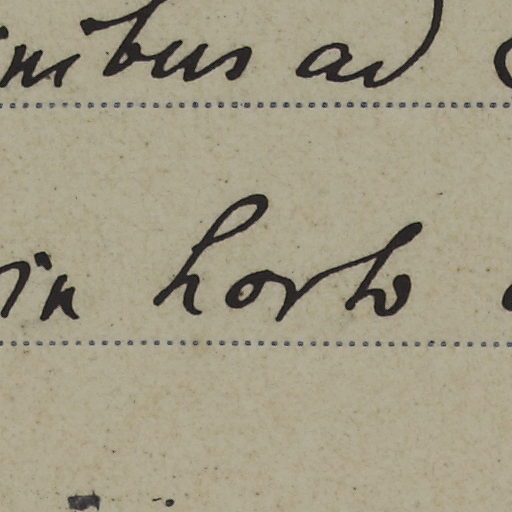 inibus ad
in horto